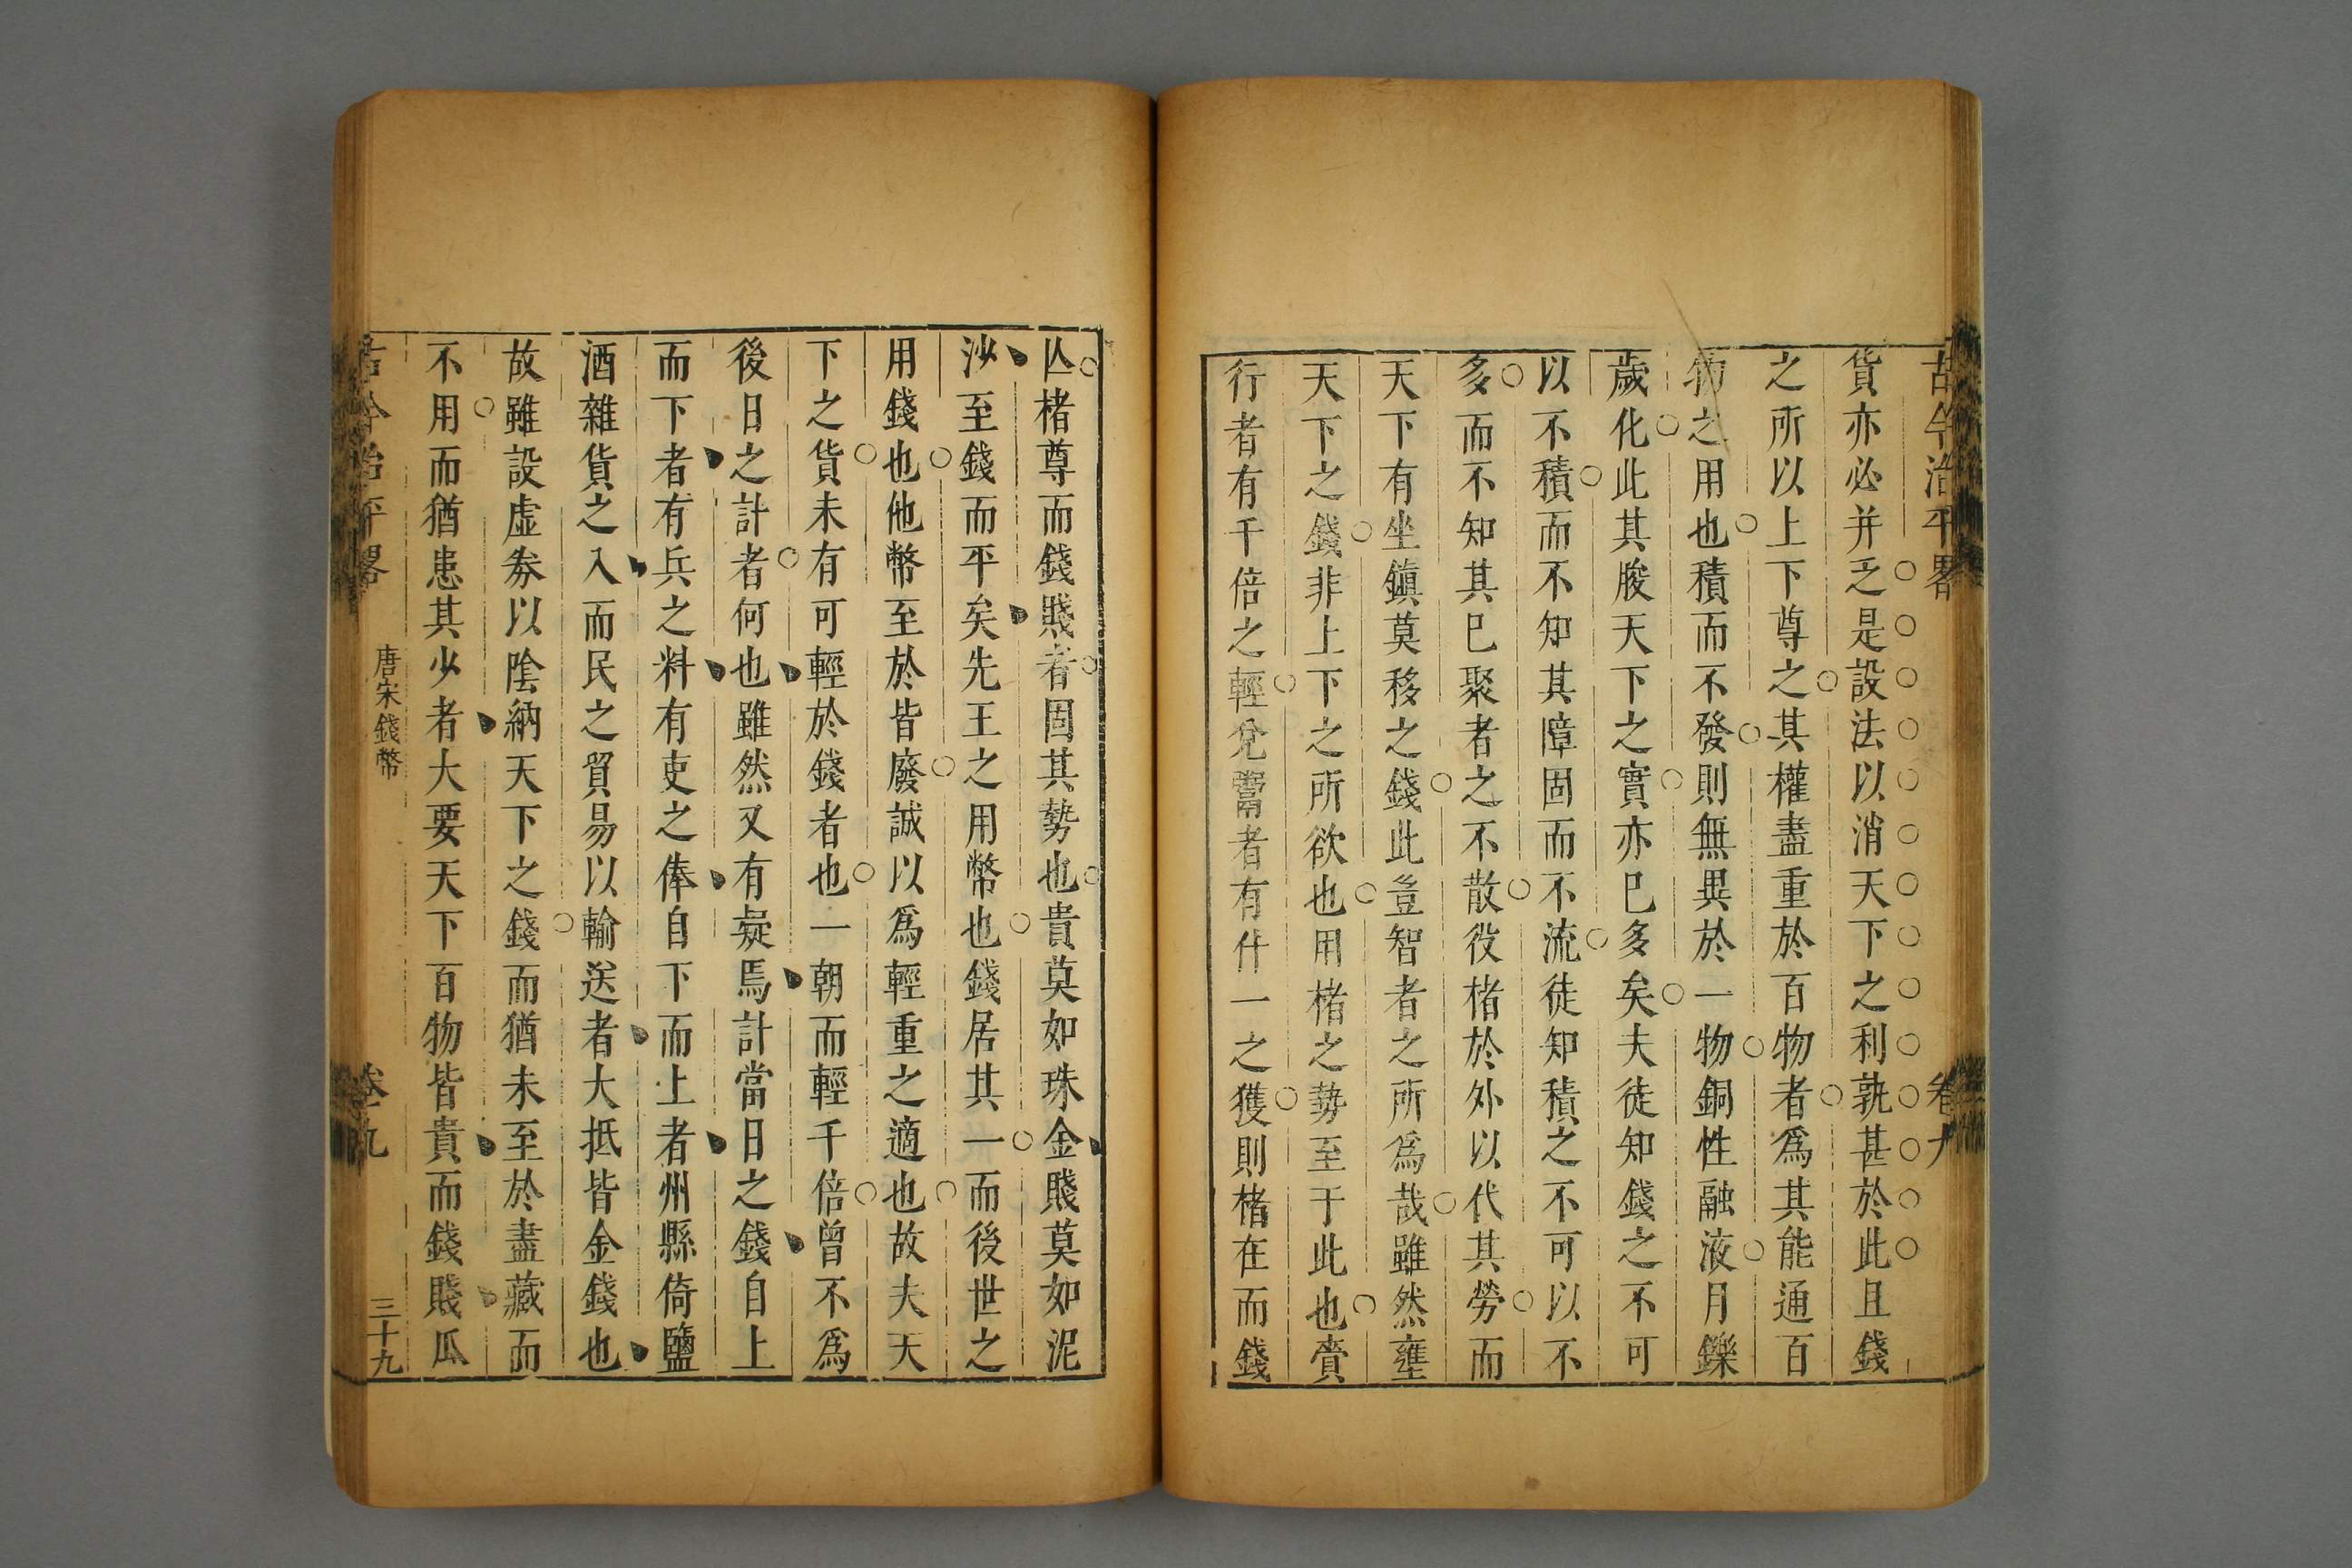 古今治平畧
卷九
貨亦必并乏是設法以消天下之利孰甚於此且錢
之所以上下尊之其權盡重於百物者爲其能通百
物之用也積而不發則無異於一物銅性融液月鑠
歲化此其朘天下之實亦已多矣夫徒知錢之不可
以不積而不知其障固而不流徒知積之不可以不
多而不知其已聚者之不散役楮於外以代其勞而
天下有坐鎮莫移之錢此豈智者之所爲哉雖然壅
天下之錢非上下之所欲也用楮之勢至于此也賫
行者有千倍之輕兌鬻者有什一之獲則楮在而錢
亾楮尊而錢賤者固其勢也貴莫如珠金賤莫如泥
沙至錢而平矣先王之用幣也錢居其一而後世之
用錢也他幣至於皆廢誠以爲輕重之適也故夫天
下之貨未有可輕於錢者也一朝而輕千倍曾不爲
後日之計者何也雖然又有疑焉計當日之錢自上
而下者有兵之料有吏之俸自下而上者州縣倚鹽
酒雜貨之入而民之貿易以輸送者大抵皆金錢也
故雖設虛券以陰納天下之錢而猶未至於盡藏而
不用而猶患其少者大要天下百物皆貴而錢賤瓜
古今治平畧
唐宋錢幣
卷九
三十九